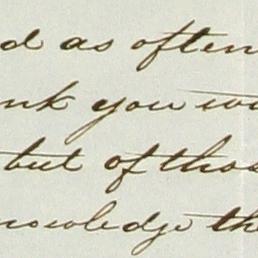 d as often
nk you w
but of thos
nowledge the